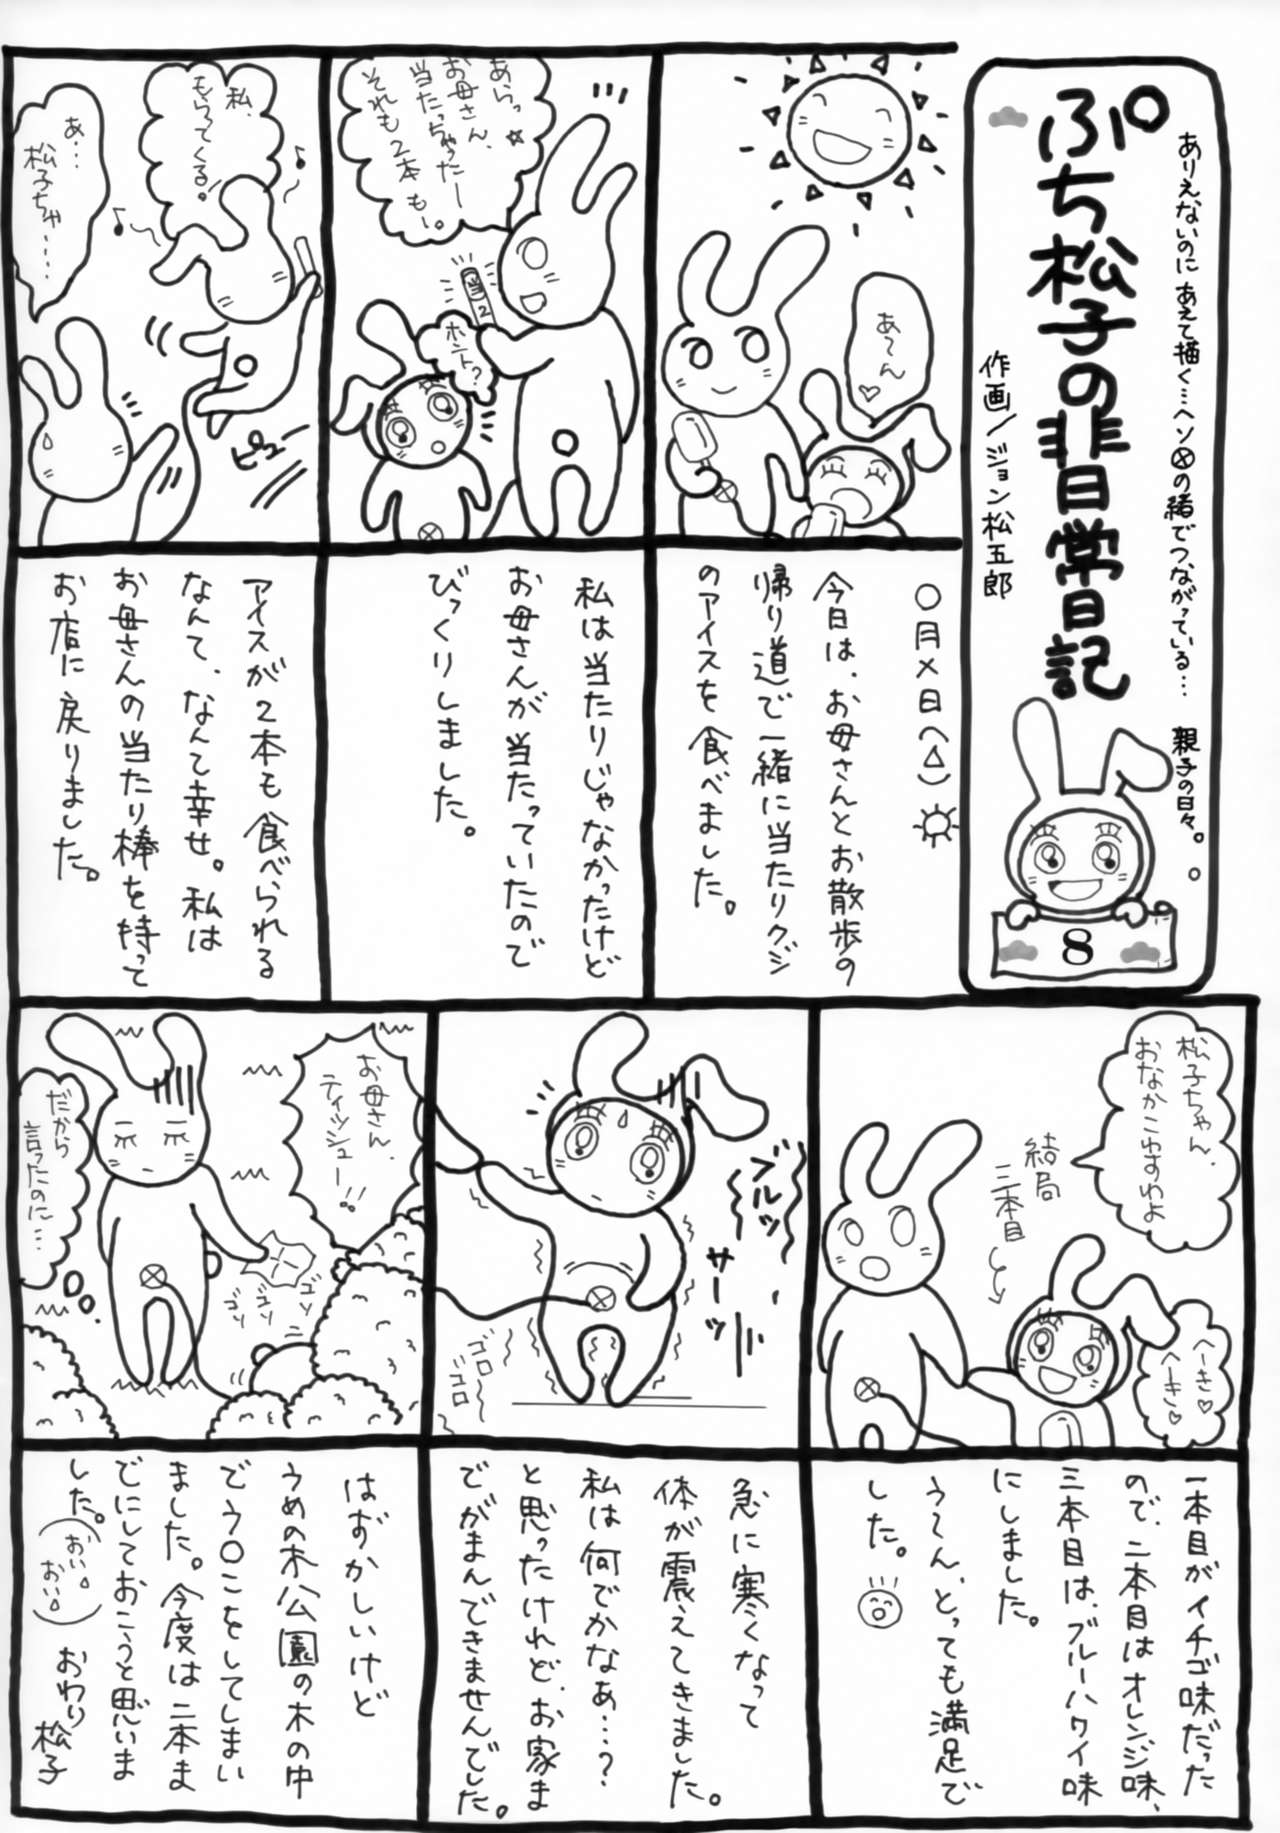 ありえないのにあえて描く…ヘソ⊗の緒でつながっている…親子の日々。
ぷち松子の非日常日記
作画／ジョン松五郎
8
あ〜ん♡
○月×日（△）
今日は、お母さんとお散歩の
帰り道で一緒に当たりクジ
のアイスを食べました。
あらっ☆
お母さん、
当たっちゃったー
それも2本も。
当
2
ホント?
私は当たりじゃなかったけど
お母さんが当たっていたので
びっくりしました。
私、
もらってくる!
あ…
松子ちゃ……
ピュー
アイスが2本も食べられる
なんて、なんて幸せ。私は
お母さんの当たり棒を持って
お店に戻りました。
松子ちゃん、
おなかこわすわよ
結局
三本目
へーき♡
へーき♡
一本目がイチゴ味だった
ので、二本目はオレンジ味、
三本目は、ブルーハワイ味
にしました。
う〜ん、とっても満足で
した。
ブルッ
サーッ
ゴロ〜
ゴロ
急に寒くなって
体が震えてきました。
私は何でかなぁ…?
と思ったけれど、お家ま
でがまんできませんでした。
お母さん、
ティッシュー!!
だから
言ったのに…
ゴソ
ゴソ
ゴソ
はずかしいけど
うめの木公園の木の中
でう○こをしてしまい
ました。今度は二本ま
でにしておこうと思いま
した。（おい△おい△）
おわり
松子